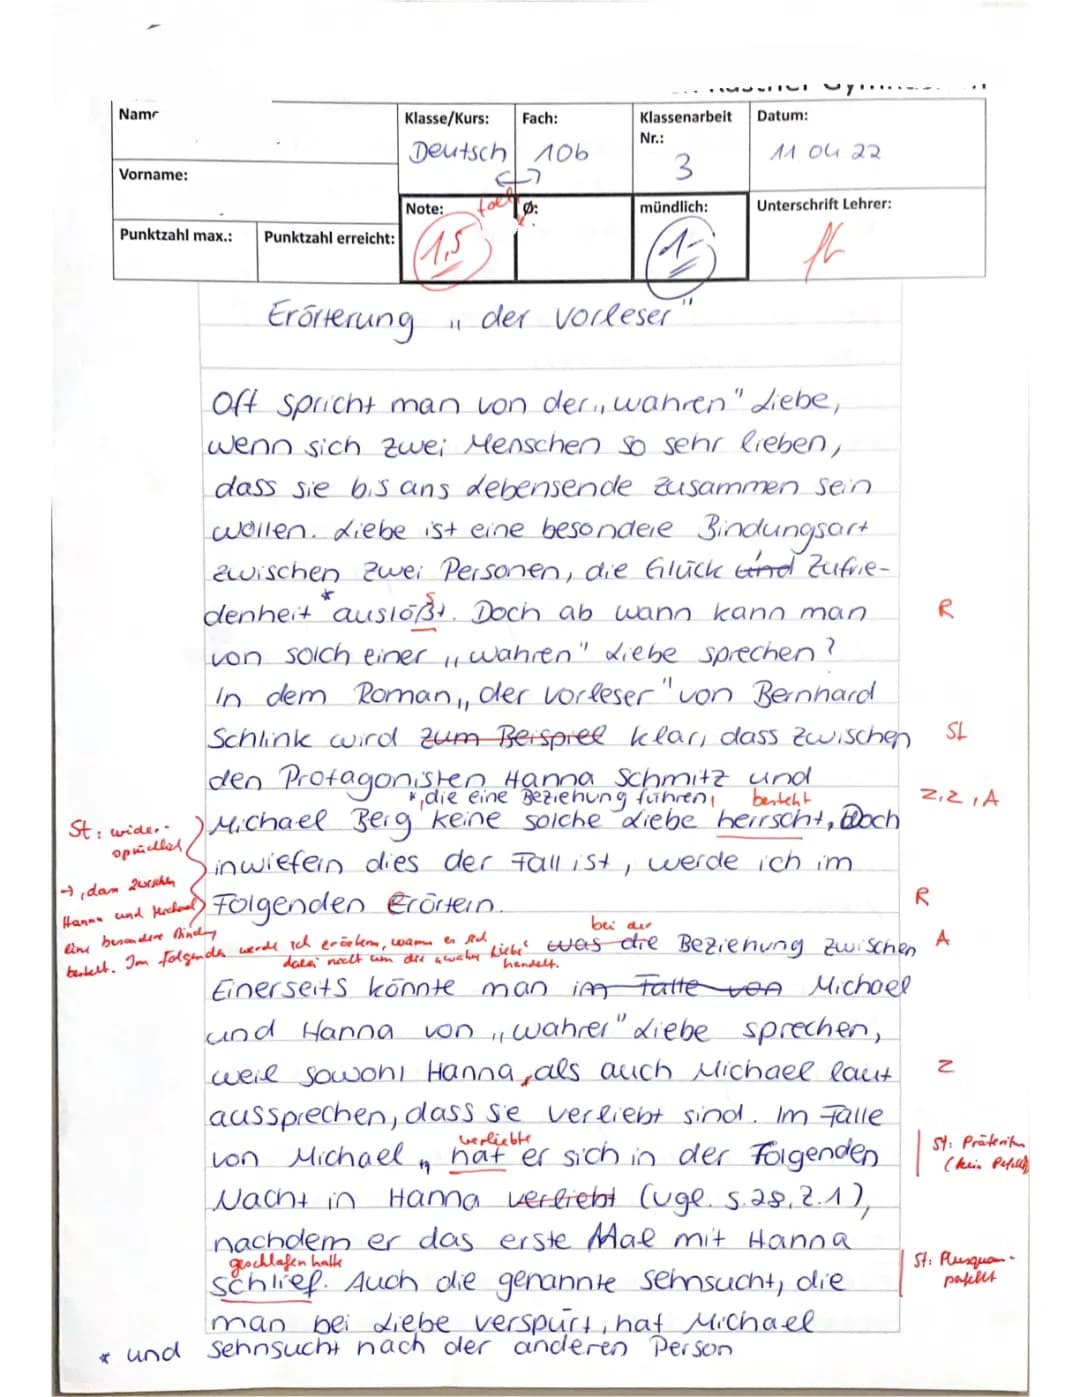 Name
Klasse/Kurs:
Fach:
Klassenarbeit Nr.:
Datum:
Deutsch
10b
3
11 04 22
Vorname:
Note:
Ø:
mündlich:
Unterschrift Lehrer:
Punktzahl max.:
Punktzahl erreicht:
toll
1,5
1-
Erörterung „der Vorleser"
Oft spricht man von der „wahren" Liebe,
wenn sich zwei Menschen so sehr lieben,
dass sie bis ans Lebensende zusammen sein
wollen. Liebe ist eine besondere Bindungsart
zwischen zwei Personen, die Glück und Zufrie-
denheit * auslößt. Doch ab wann kann man
s
R
von solch einer „wahren" Liebe sprechen?
In dem Roman „der Vorleser" von Bernhard
Schlink wird zum Beispiel klar, dass zwischen
St
den Protagonisten Hanna Schmitz und
*, die eine Beziehung führen, besteht
Z, Z, A
Michael Berg keine solche Liebe herrscht, Doch
St: wider-
sprüchlich
inwiefern dies der Fall ist, werde ich im
→, dass zwischen
Folgenden Erörtern.
R
Hanna und Michael
eine besondere Bindung
besteht. Im Folgenden werde ich erörtern, wann es sich
dabei nicht um die „wahre Liebe" handelt.
bei der
was die Beziehung zwischen
A
Einerseits könnte man im Falle von Michael
und Hanna von „wahrer" Liebe sprechen,
weil sowohl Hanna, als auch Michael laut
Z
aussprechen, dass sie verliebt sind. Im Falle
verliebte
von Michael, hat er sich in der Folgenden
St: Präteritum
(kein Perfekt)
Nacht in Hanna verliebt (vgl. S.28, Z.1),
nachdem er das erste Mal mit Hanna
geschlafen hatte
schlief. Auch die genannte Sehnsucht, die
St: Plusquam-
perfekt
man bei Liebe verspürt, hat Michael
* und Sehnsucht nach der anderen Person